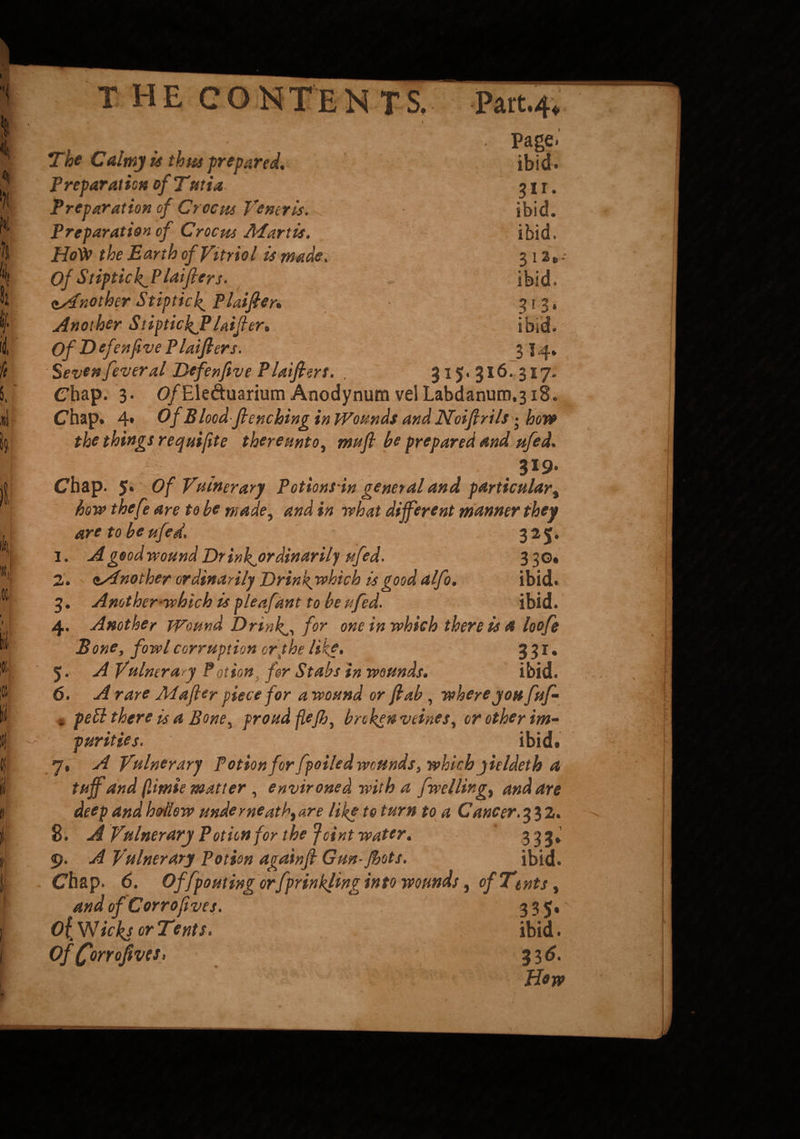 THE CONTENTS. Part.4.
Page.
The Calmy is thus prepared. ibid.
Preparation of Tutia 311.
Preparation of Crocus Veneris. ibid.
Preparation of Crocus Martis. ibid.
How the Earth of Vitriol is made. 312.
Of Stiptick Plaiſters. ibid.
Another Stiptick Plaiſter. 313.
Another Stiptick Plaiſter. ibid.
Of Defenſive Plaiſters. 314.
Seven ſeveral Defenſive Plaiſters. 315. 316. 317.
Chap. 3. Of Electuarium Anodynum vel Labdanum. 318.
Chap. 4. Of Blood-ſtenching in Wounds and Noiſtrils; how
the things requiſite thereunto, muſt be prepared and uſed.
319.
Chap. 5. Of Vulnerary Potions in general and particular,
how theſe are to be made, and in what different manner they
are to be uſed. 325.
1. A good wound Drink ordinarily uſed. 330.
2. Another ordinarily Drink which is good alſo. ibid.
3. Another which is pleaſant to be uſed. ibid.
4. Another Wound Drink, for one in which there is a looſe
Bone, fowl corruption or the like. 331.
5. A Vulnerary Potion, for Stabs in wounds. ibid.
6. A rare Maſter piece for a wound or ſtab, where you ſuſ-
pect there is a Bone, proud fleſh, broken veines, or other im-
purities. ibid.
7. A Vulnerary Potion for ſpoiled wounds, which yieldeth a
tuff and ſlimie matter, environed with a ſwelling, and are
deep and hollow underneath, are like to turn to a Cancer. 332.
8. A Vulnerary Potion for the Joint water. 333.
9. A Vulnerary Potion againſt Gun-ſhots. ibid.
Chap. 6. Of ſpouting or ſprinkling into wounds, of Tents,
and of Corroſives. 335.
Of Wicks or Tents. ibid.
Of Corroſives. 336.
How